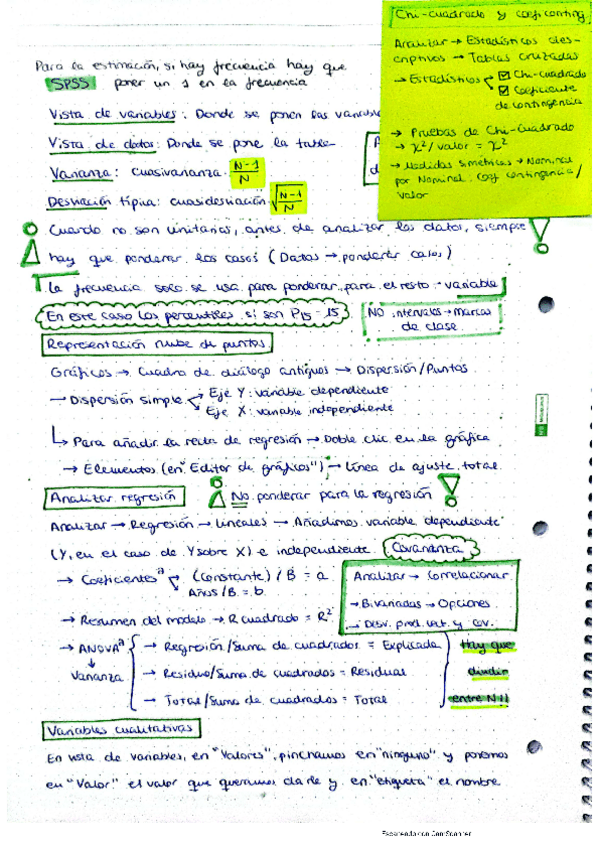 Para la estimación, si hay frecuencia hay que
SPSS poner un 1 en la frecuencia
Vista de variables: Donde se ponen las variabl
Vista de datos: Donde se pone la tabla
Varianza: cuasivarianza · N-1/N
Desviación típica: cuasidesviación · √N-1/N
Cuando no son unitarias, antes de analizar los datos, siempre
hay que ponderar los casos (Datos → ponderar casos)
La frecuencia solo se usa para ponderar, para el resto → variable
En este caso los percentiles sí son P15 - 15
NO intervalos → Marcas
de clase
Representación nube de puntos
Gráficos → Cuadro de diálogo antiguos → Dispersión/Puntos
→ Dispersión simple
Eje Y: variable dependiente
Eje X: variable independiente
↳ Para añadir la recta de regresión → Doble clic en la gráfica
→ Elementos (en "Editor de gráficos") → línea de ajuste total
Analizar regresión
¡No ponderar para la regresión!
Analizar → Regresión → Lineales → Añadimos variable dependiente
(Y, en el caso de Y sobre X) e independiente
Covarianza
→ Coeficientesª
(Constante) / B = a
Años / B = b
Analizar → Correlacionar
→ Bivariadas → Opciones
→ Desv. prod. vect. y cov.
→ Resumen del modelo → R cuadrado = R²
→ ANOVAª
↓
Varianza
→ Regresión/Suma de cuadrados = Explicada
→ Residuo/Suma de cuadrados = Residual
→ Total/Suma de cuadrados = Total
Hay que
dividir
entre N!!
Variables cualitativas
En vista de variables, en "Valores", pinchamos en "ninguno" y ponemos
en "Valor" el valor que queramos darle y en "etiqueta" el nombre
Chi-cuadrado y coef. conting.
Analizar → Estadísticos des-
criptivos → Tablas cruzadas
→ Estadísticos
☑ Chi-cuadrado
☑ Coeficiente
de contingencia
→ Pruebas de Chi-Cuadrado
→ X²/valor = X²
→ Medidas simétricas → Nominal
por Nominal. Coef contingencia/
valor
Escaneado con CamScanner